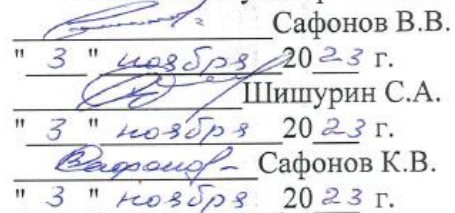 Сафонов В.В.
" 3 " ноября 2023 г.
Шишурин С.А.
" 3 " ноября 2023 г.
Сафонов К.В.
" 3 " ноября 2023 г.